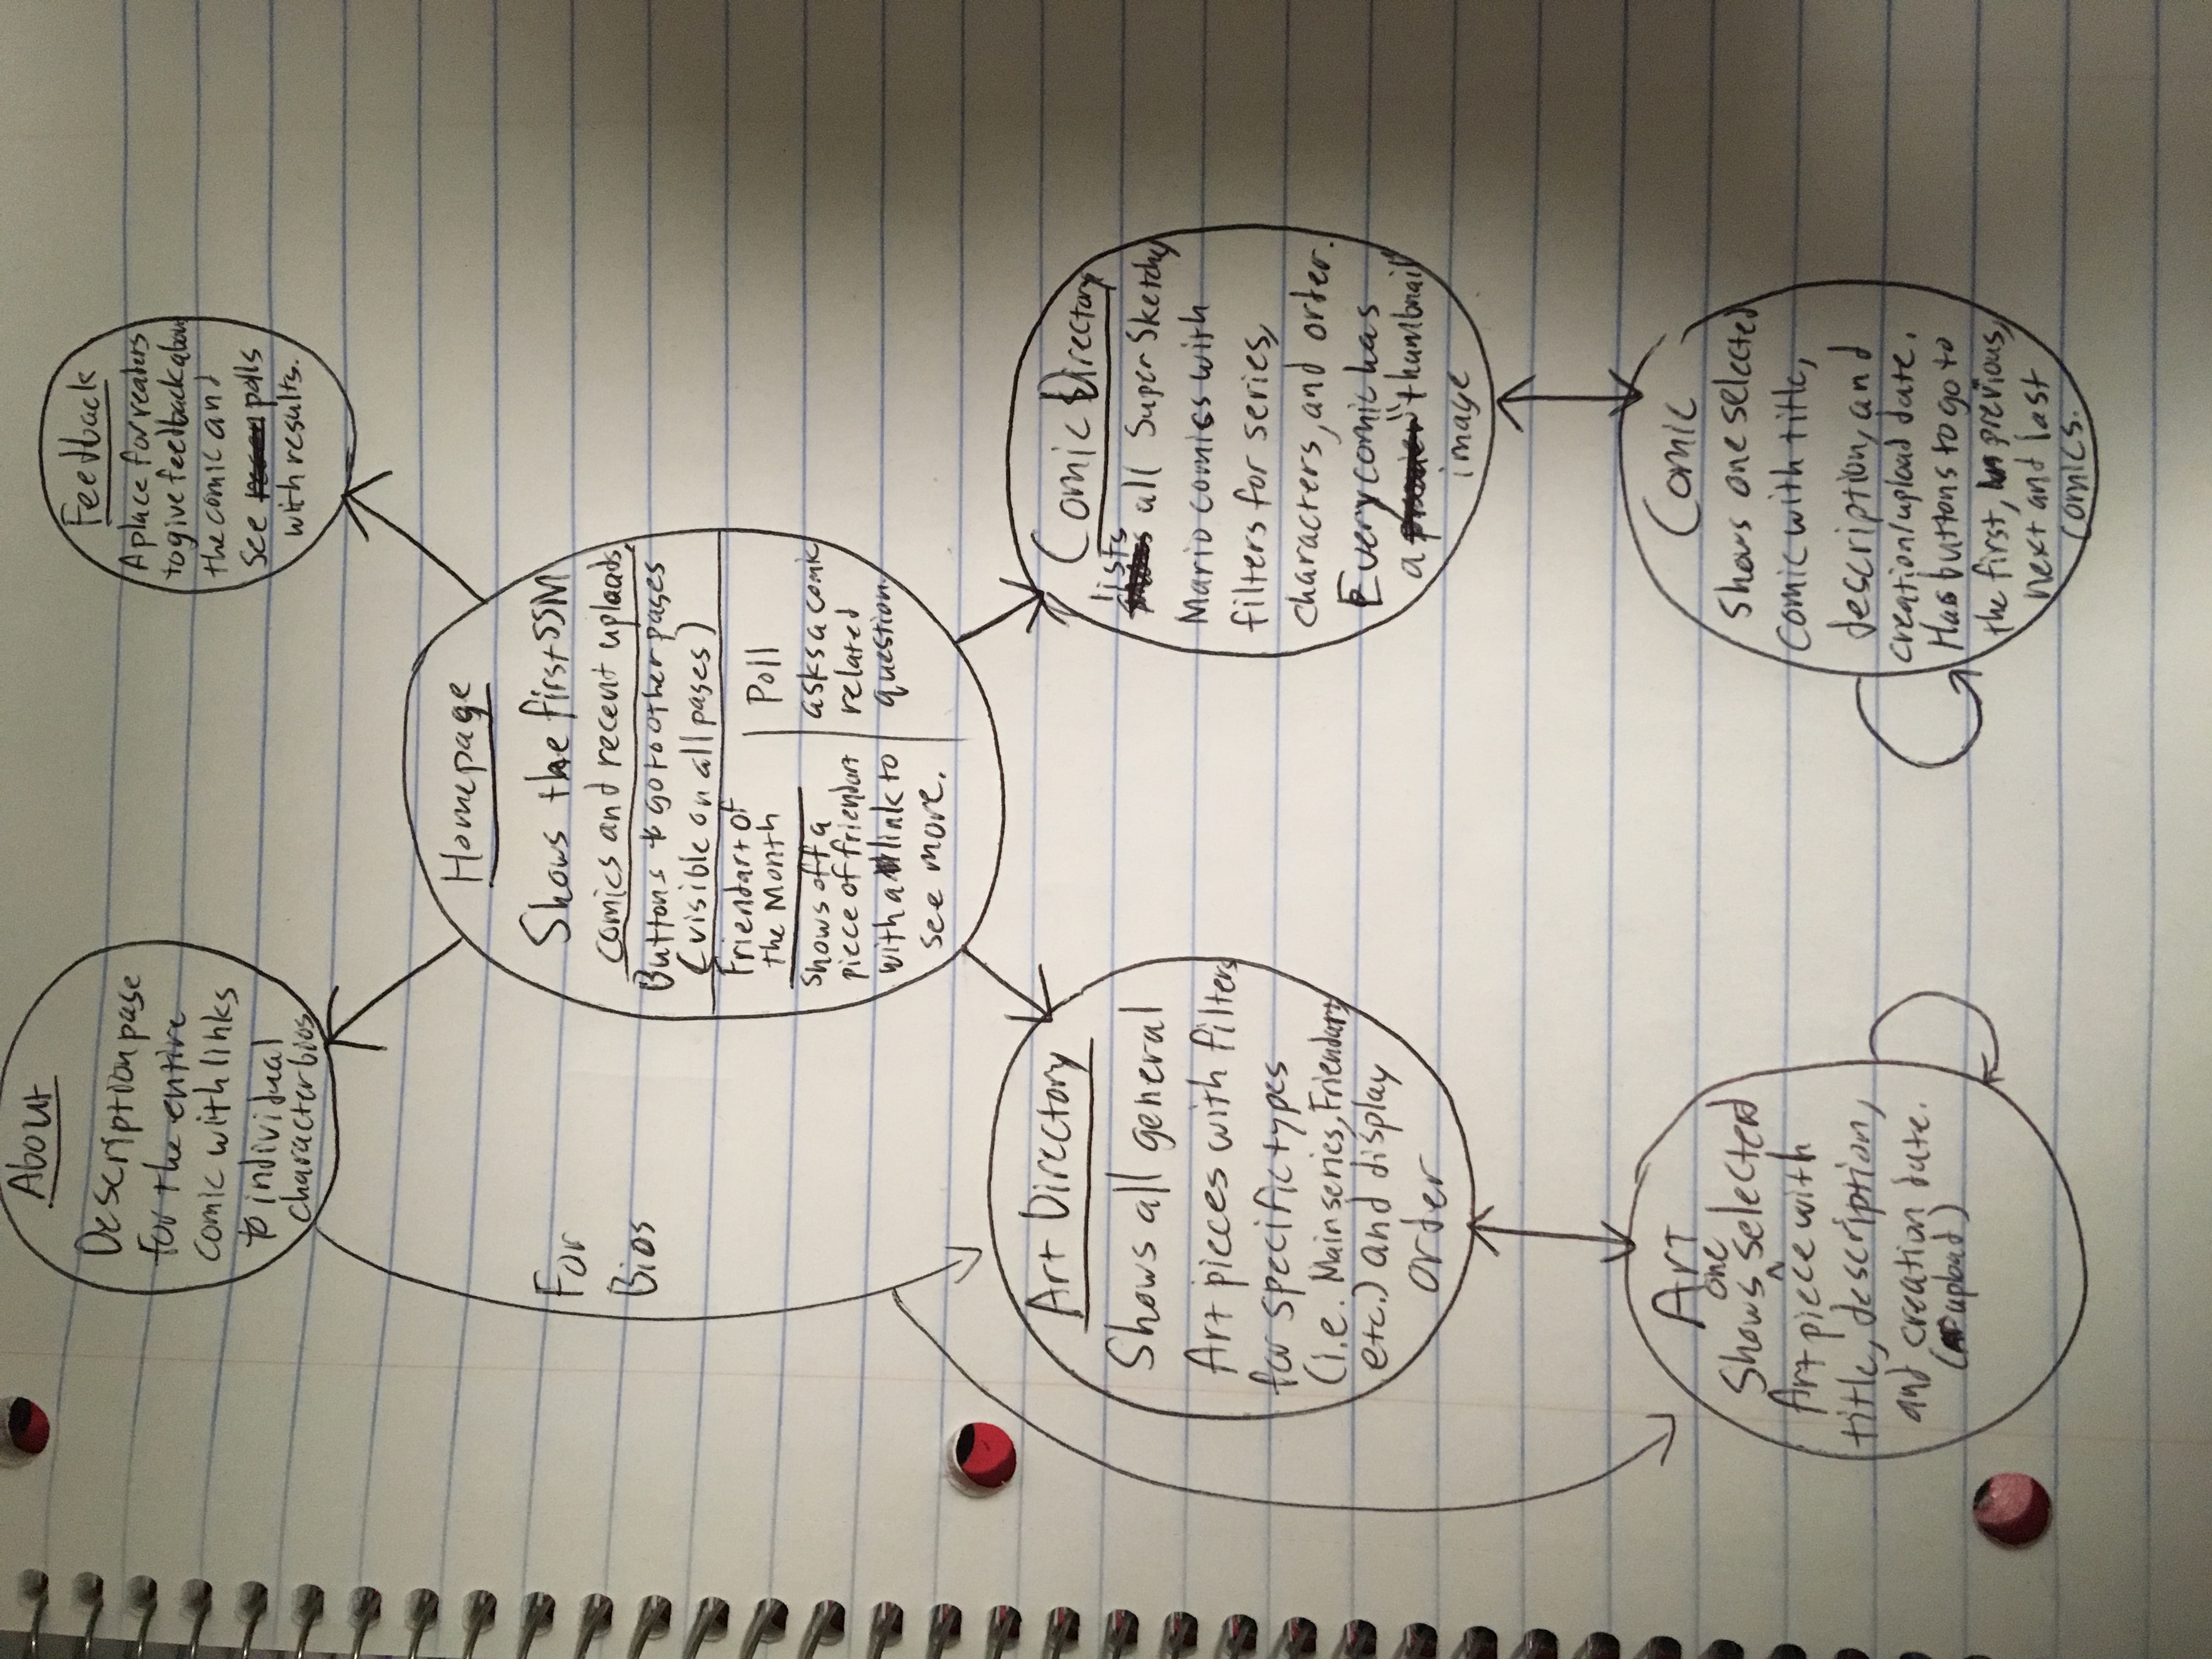 About
Description page
for the entire
comic with links
to individual
character bios
Feedback
A place for readers
to give feedback abou
the comic and
see polls
with results.
Homepage
Shows the first SSM
comics and recent uploads,
Buttons to go to other pages
(visible on all pages)
Friendart of
the Month
shows off a
piece of friendart
with a link to
see more.
Poll
asks a comic
related
question.
For
Bios
Art Directory
Shows all general
Art pieces with filters
for specific types
(i.e. Main series, Friendart,
etc.) and display
order
Comic Directory
lists
all Super Sketchy
Mario comics with
filters for series,
characters, and order.
Every comic has
a "thumbnail"
image
Art
one
Shows ^ selected
Art piece with
title, description,
and creation date.
(upload)
Comic
Shows one selected
Comic with title,
description, and
creation/upload date.
Has buttons to go to
the first, previous,
next and last
comics.